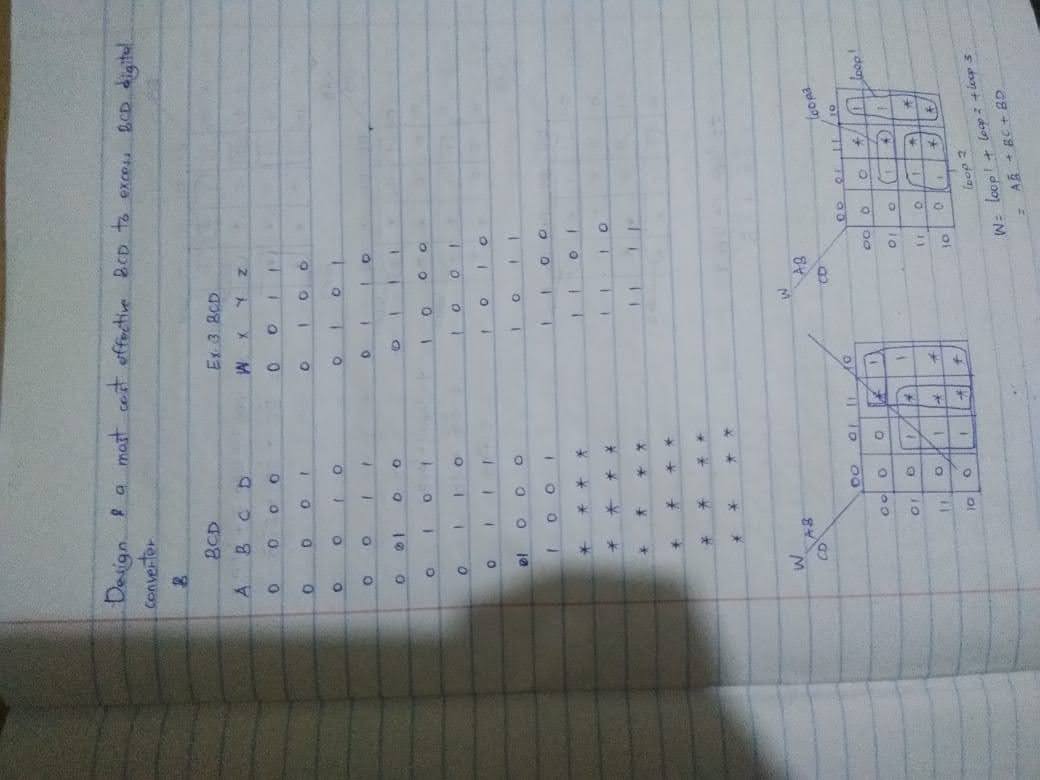 Design a most cost effective BCD to excess BCD digital
converter
BCD Ex.3 BCD
A B C D W X Y Z
0 0 0 0 0 0 1 1
0 0 0 1 0 1 0 0
0 0 1 0 0 1 0 1
0 0 1 1 0 1 1 0
0 1 0 0 0 1 1 1
0 1 0 1 1 0 0 0
0 1 1 0 1 0 0 1
0 1 1 1 1 0 1 0
1 0 0 0 1 0 1 1
1 0 0 1 1 1 0 0
* * * * 1 1 0 1
* * * * 1 1 1 0
* * * * 1 1 1 1
* * * *
* * * *
* * * *
W AB
CD
00 01 11 10
00 0 0 * 1
01 0 1 * 1
11 0 1 * *
10 0 1 * *
W AB
CD
00 01 11 10
00 0 0 * 1
01 0 1 * 1
11 0 1 * *
10 0 1 * *
loop3
loop1
loop 2
W = loop1 + loop 2 + loop 3
= AB̅ + BC + BD